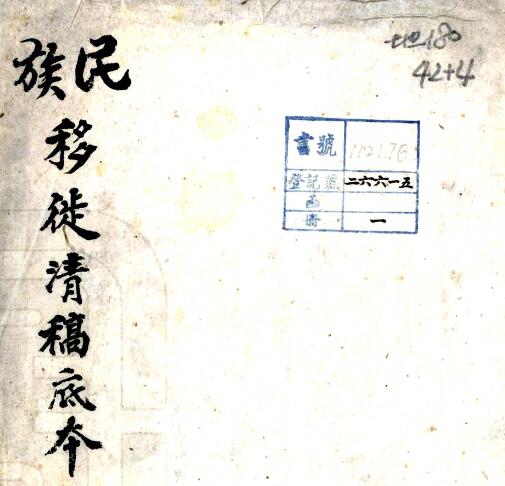 民族
移徙清稿底本
地180
42+4
書號
登記號 二六六一五
函
冊 一